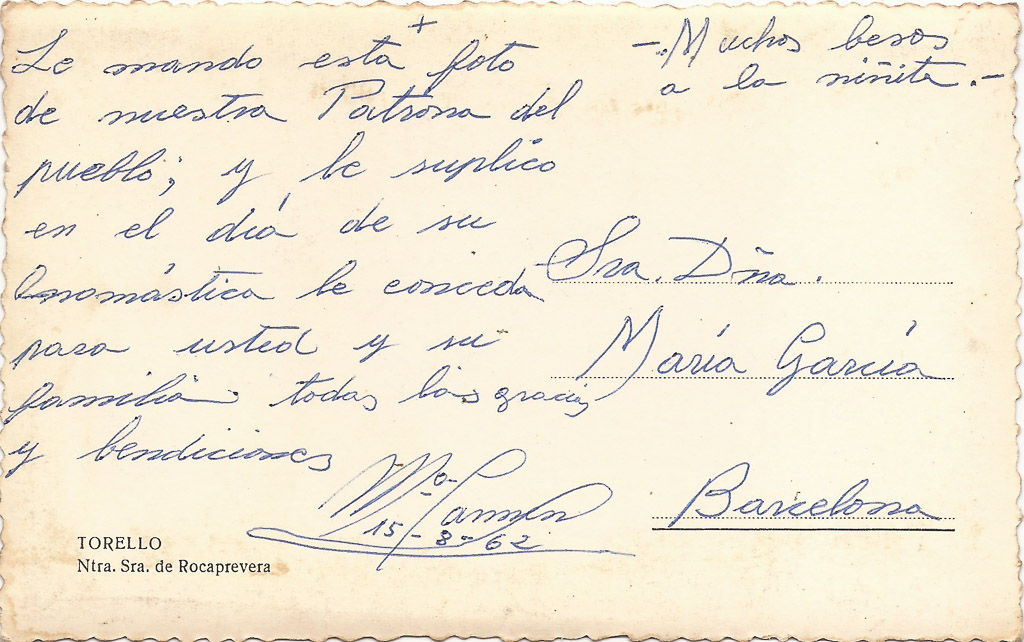 +
Le mando esta foto
de nuestra Patrona del
pueblo; y le suplico
en el día de su
Onomástica le conceda
para usted y su
familia todas las gracias
y bendiciones
Mª Carmen
15-8-62
-. Muchos besos
a la niñita.-
Sra. Dña.
María García
Barcelona
TORELLO
Ntra. Sra. de Rocaprevera